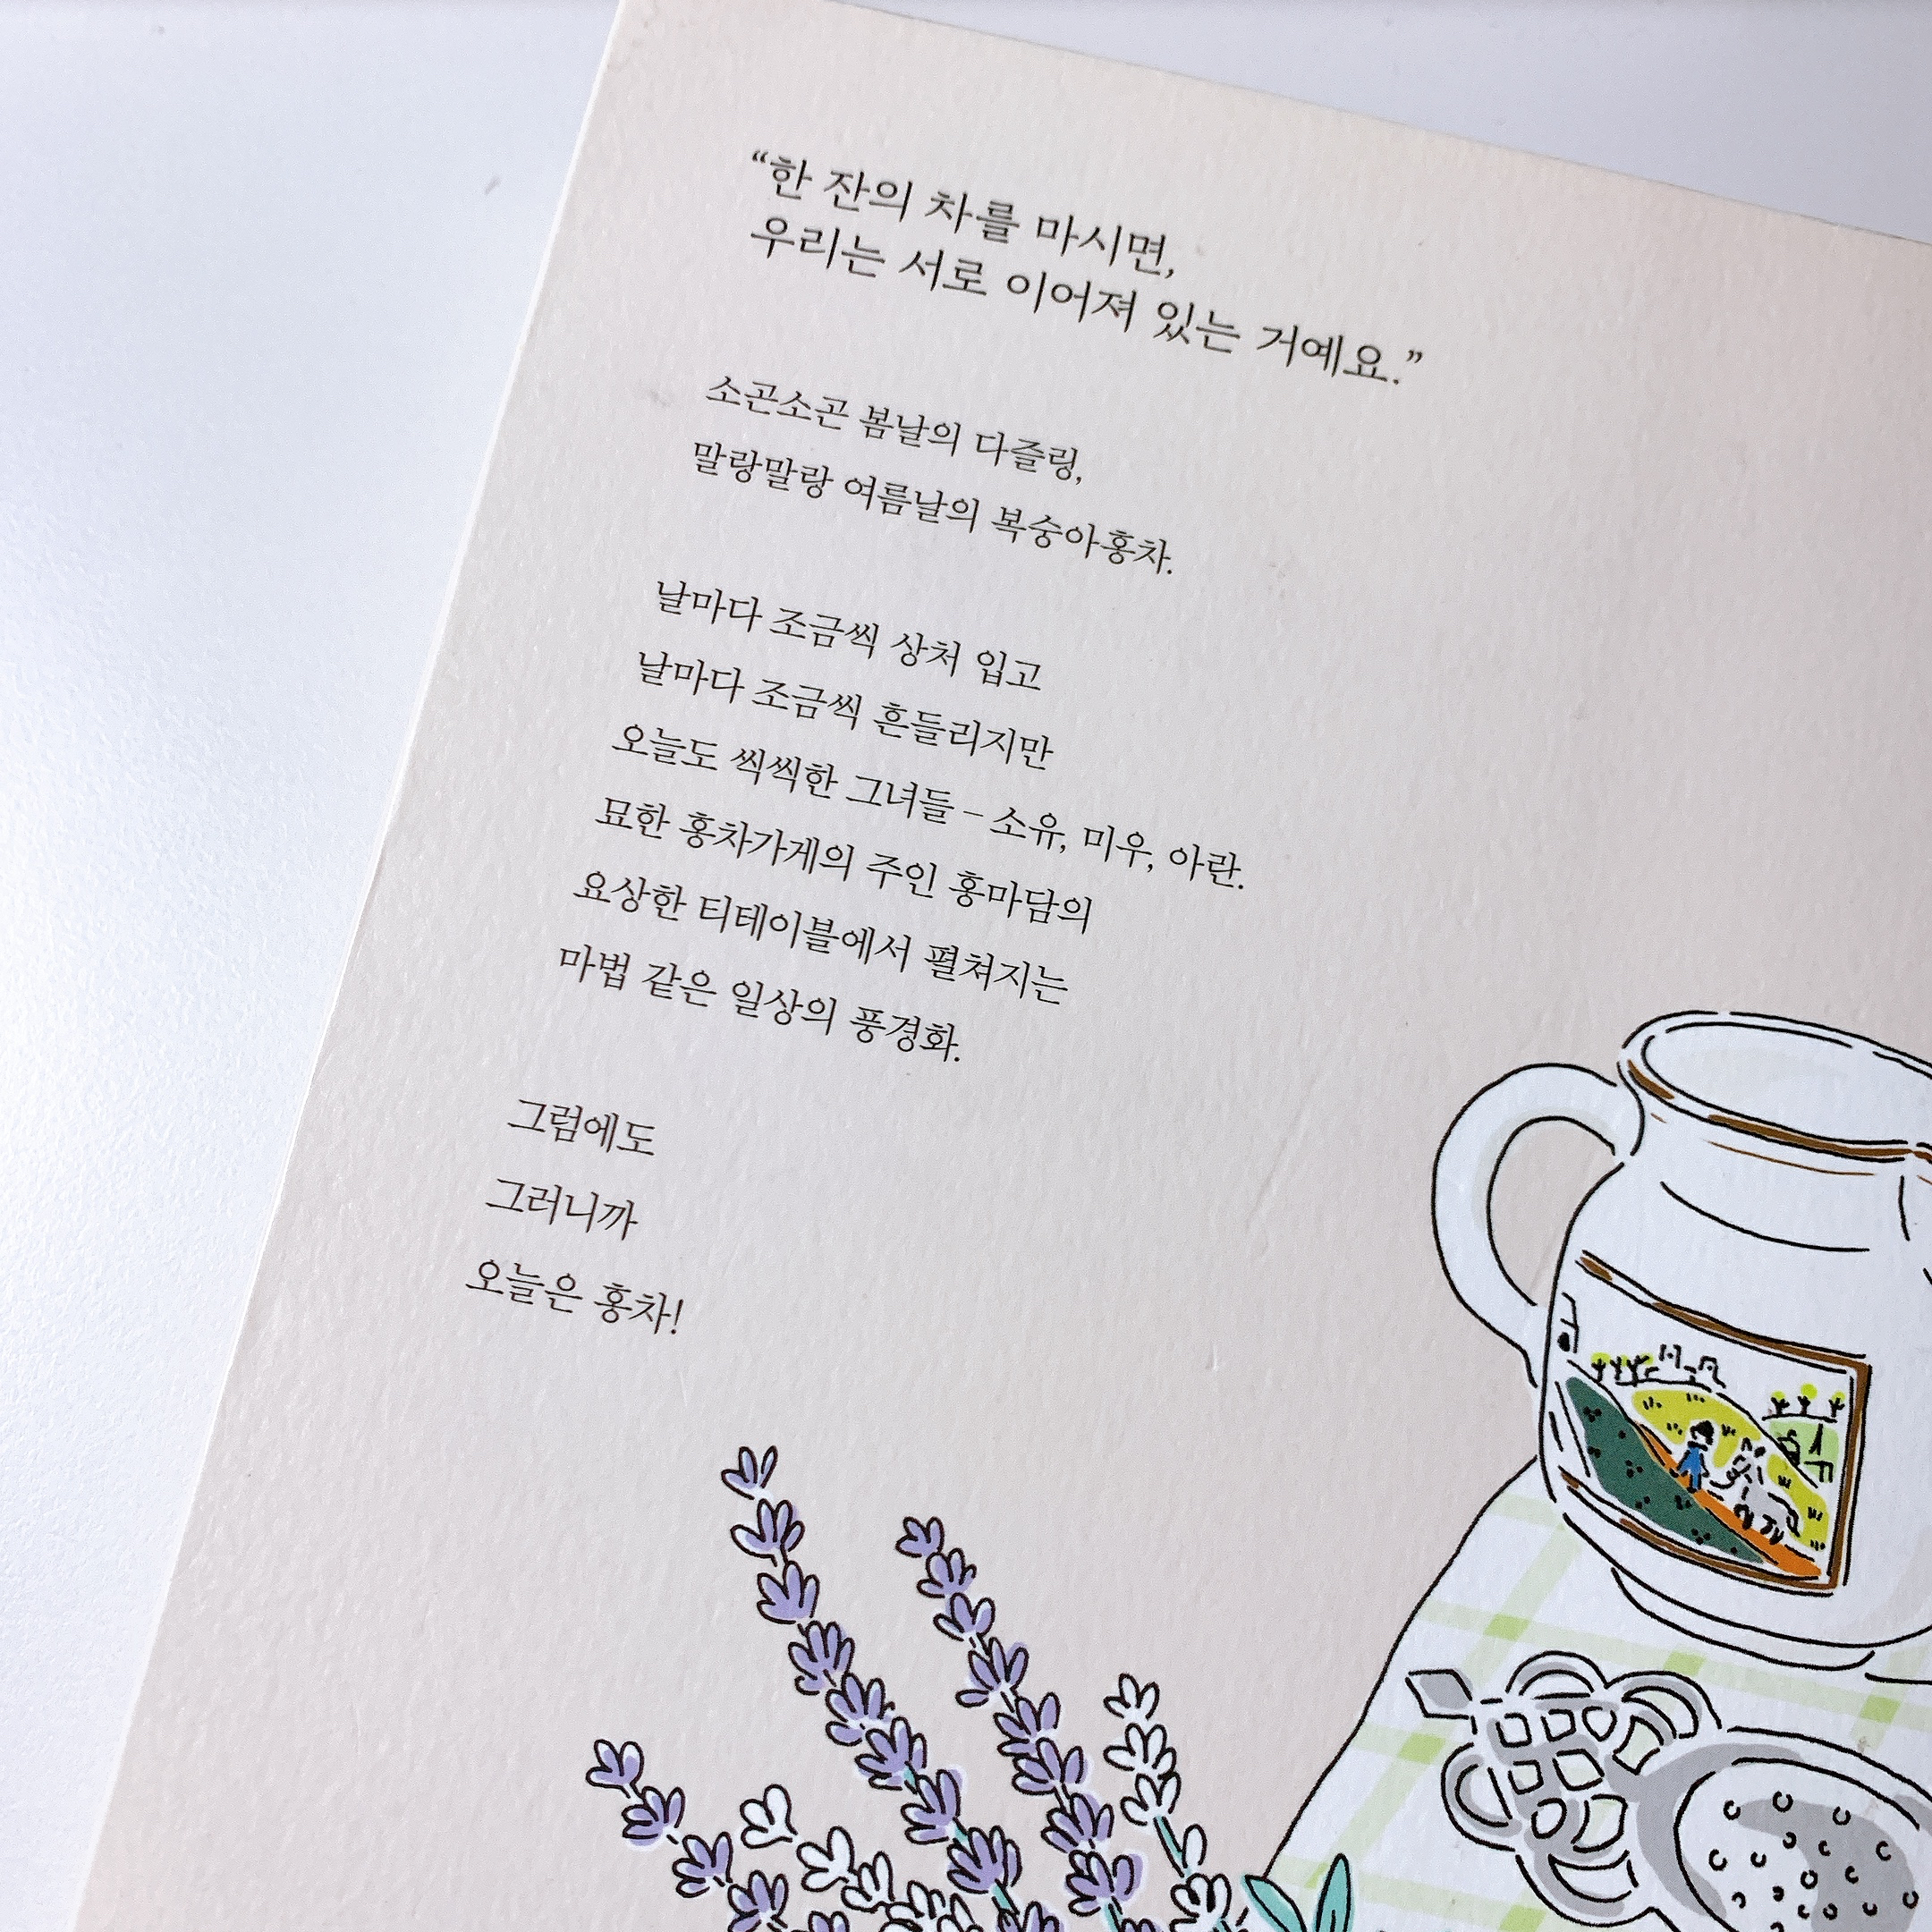 “한 잔의 차를 마시면,
우리는 서로 이어져 있는 거예요.”
소곤소곤 봄날의 다즐링,
말랑말랑 여름날의 복숭아홍차.
날마다 조금씩 상처 입고
날마다 조금씩 흔들리지만
오늘도 씩씩한 그녀들 – 소유, 미우, 아란.
묘한 홍차가게의 주인 홍마담의
요상한 티테이블에서 펼쳐지는
마법 같은 일상의 풍경화.
그럼에도
그러니까
오늘은 홍차!